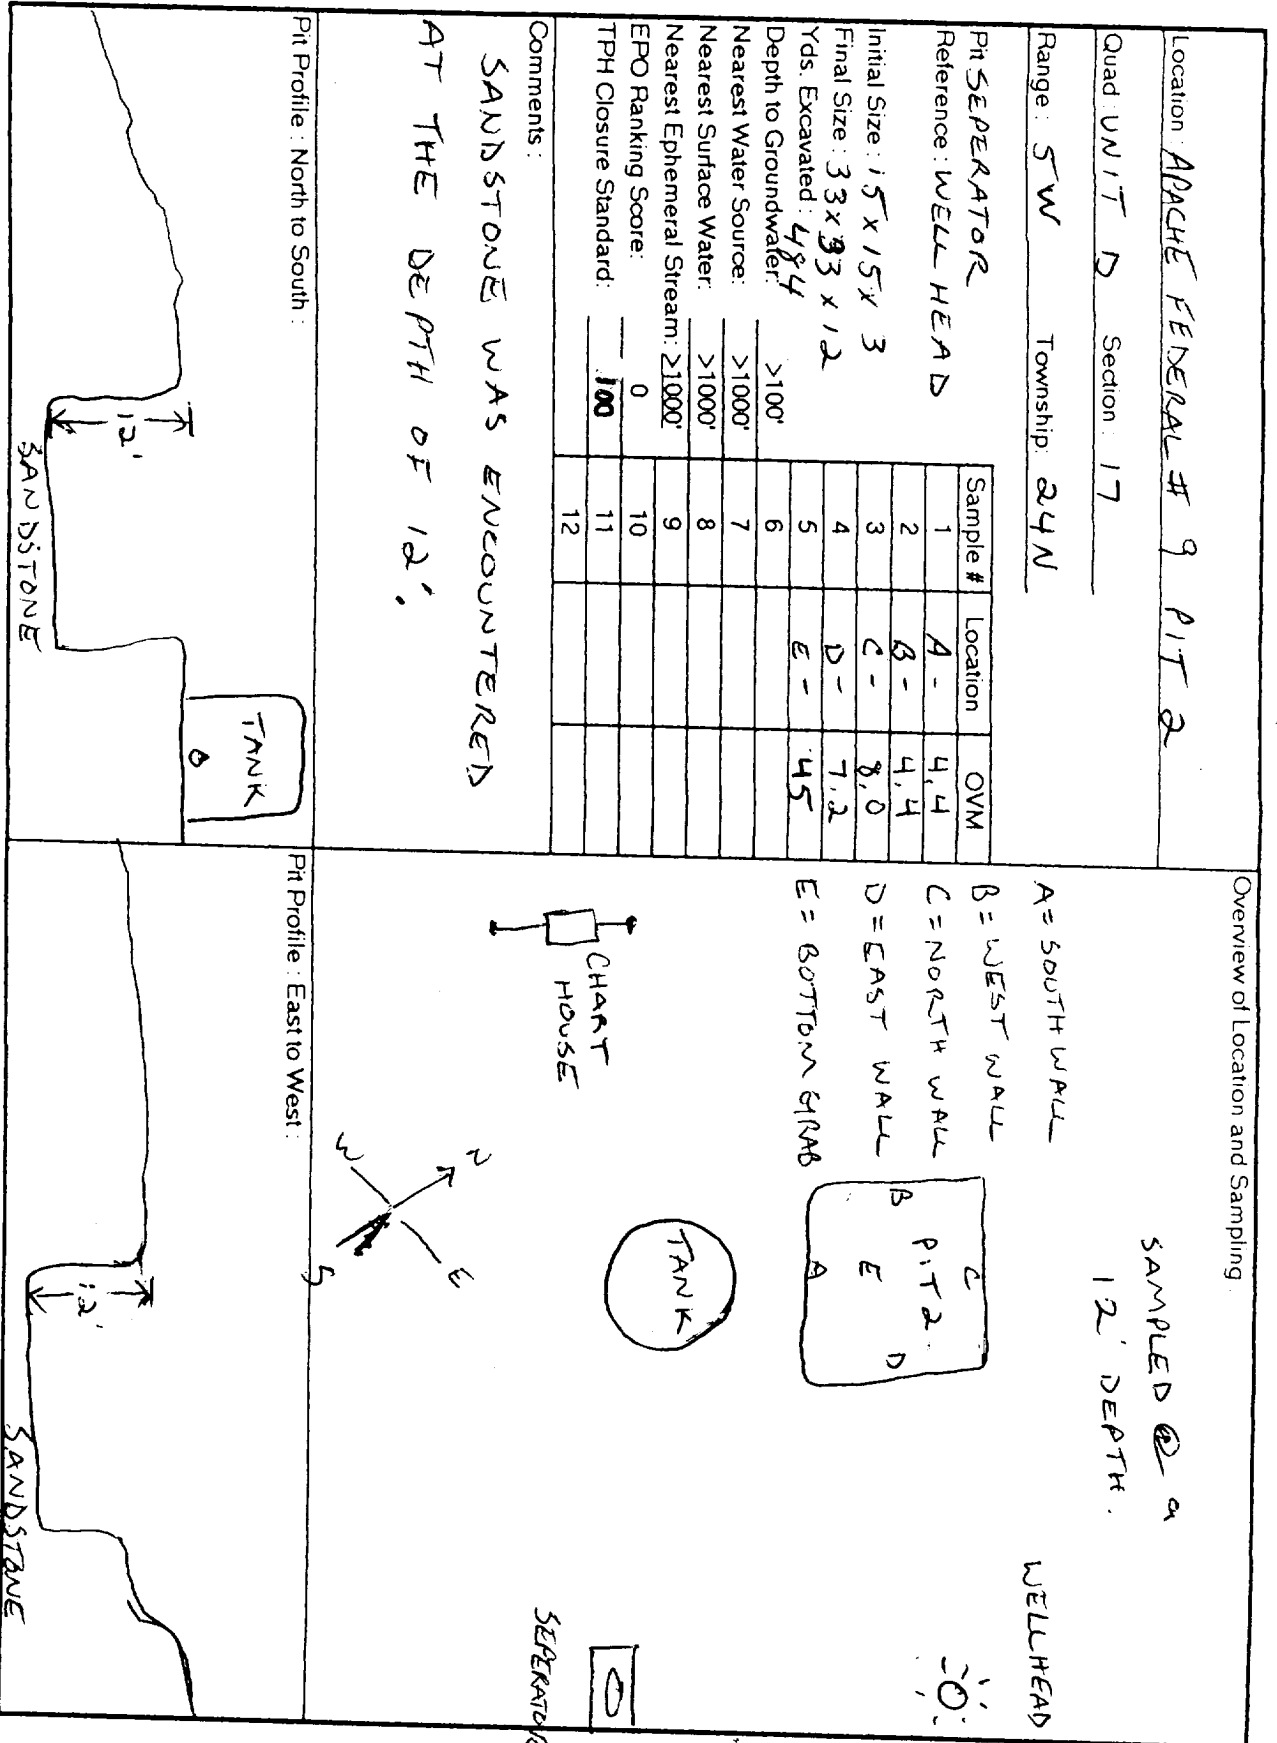 Location: APACHE FEDERAL # 9 PIT 2
Quad: UNIT D Section: 17
Range: 5W Township: 24N
Pit SEPERATOR
Reference: WELL HEAD
Initial Size: 15 x 15 x 3
Final Size: 33 x 33 x 12
Yds. Excavated: 484
Depth to Groundwater: >100'
Nearest Water Source: >1000'
Nearest Surface Water: >1000'
Nearest Ephemeral Stream: >1000'
EPO Ranking Score: 0
TPH Closure Standard: 100
Sample # Location OVM
1 A - 4.4
2 B - 4.4
3 C - 8.0
4 D - 7.2
5 E - 45
6
7
8
9
10
11
12
Comments:
SANDSTONE WAS ENCOUNTERED
AT THE DEPTH OF 12'.
Overview of Location and Sampling
SAMPLED @
12' DEPTH.
A = SOUTH WALL
B = WEST WALL
C = NORTH WALL
D = EAST WALL
E = BOTTOM GRAB
WELLHEAD
C
B PIT 2 D
E
A
TANK
CHART
HOUSE
SEPERATOR
N
W E
S
Pit Profile: North to South:
TANK
12'
SANDSTONE
Pit Profile: East to West:
12'
SANDSTONE